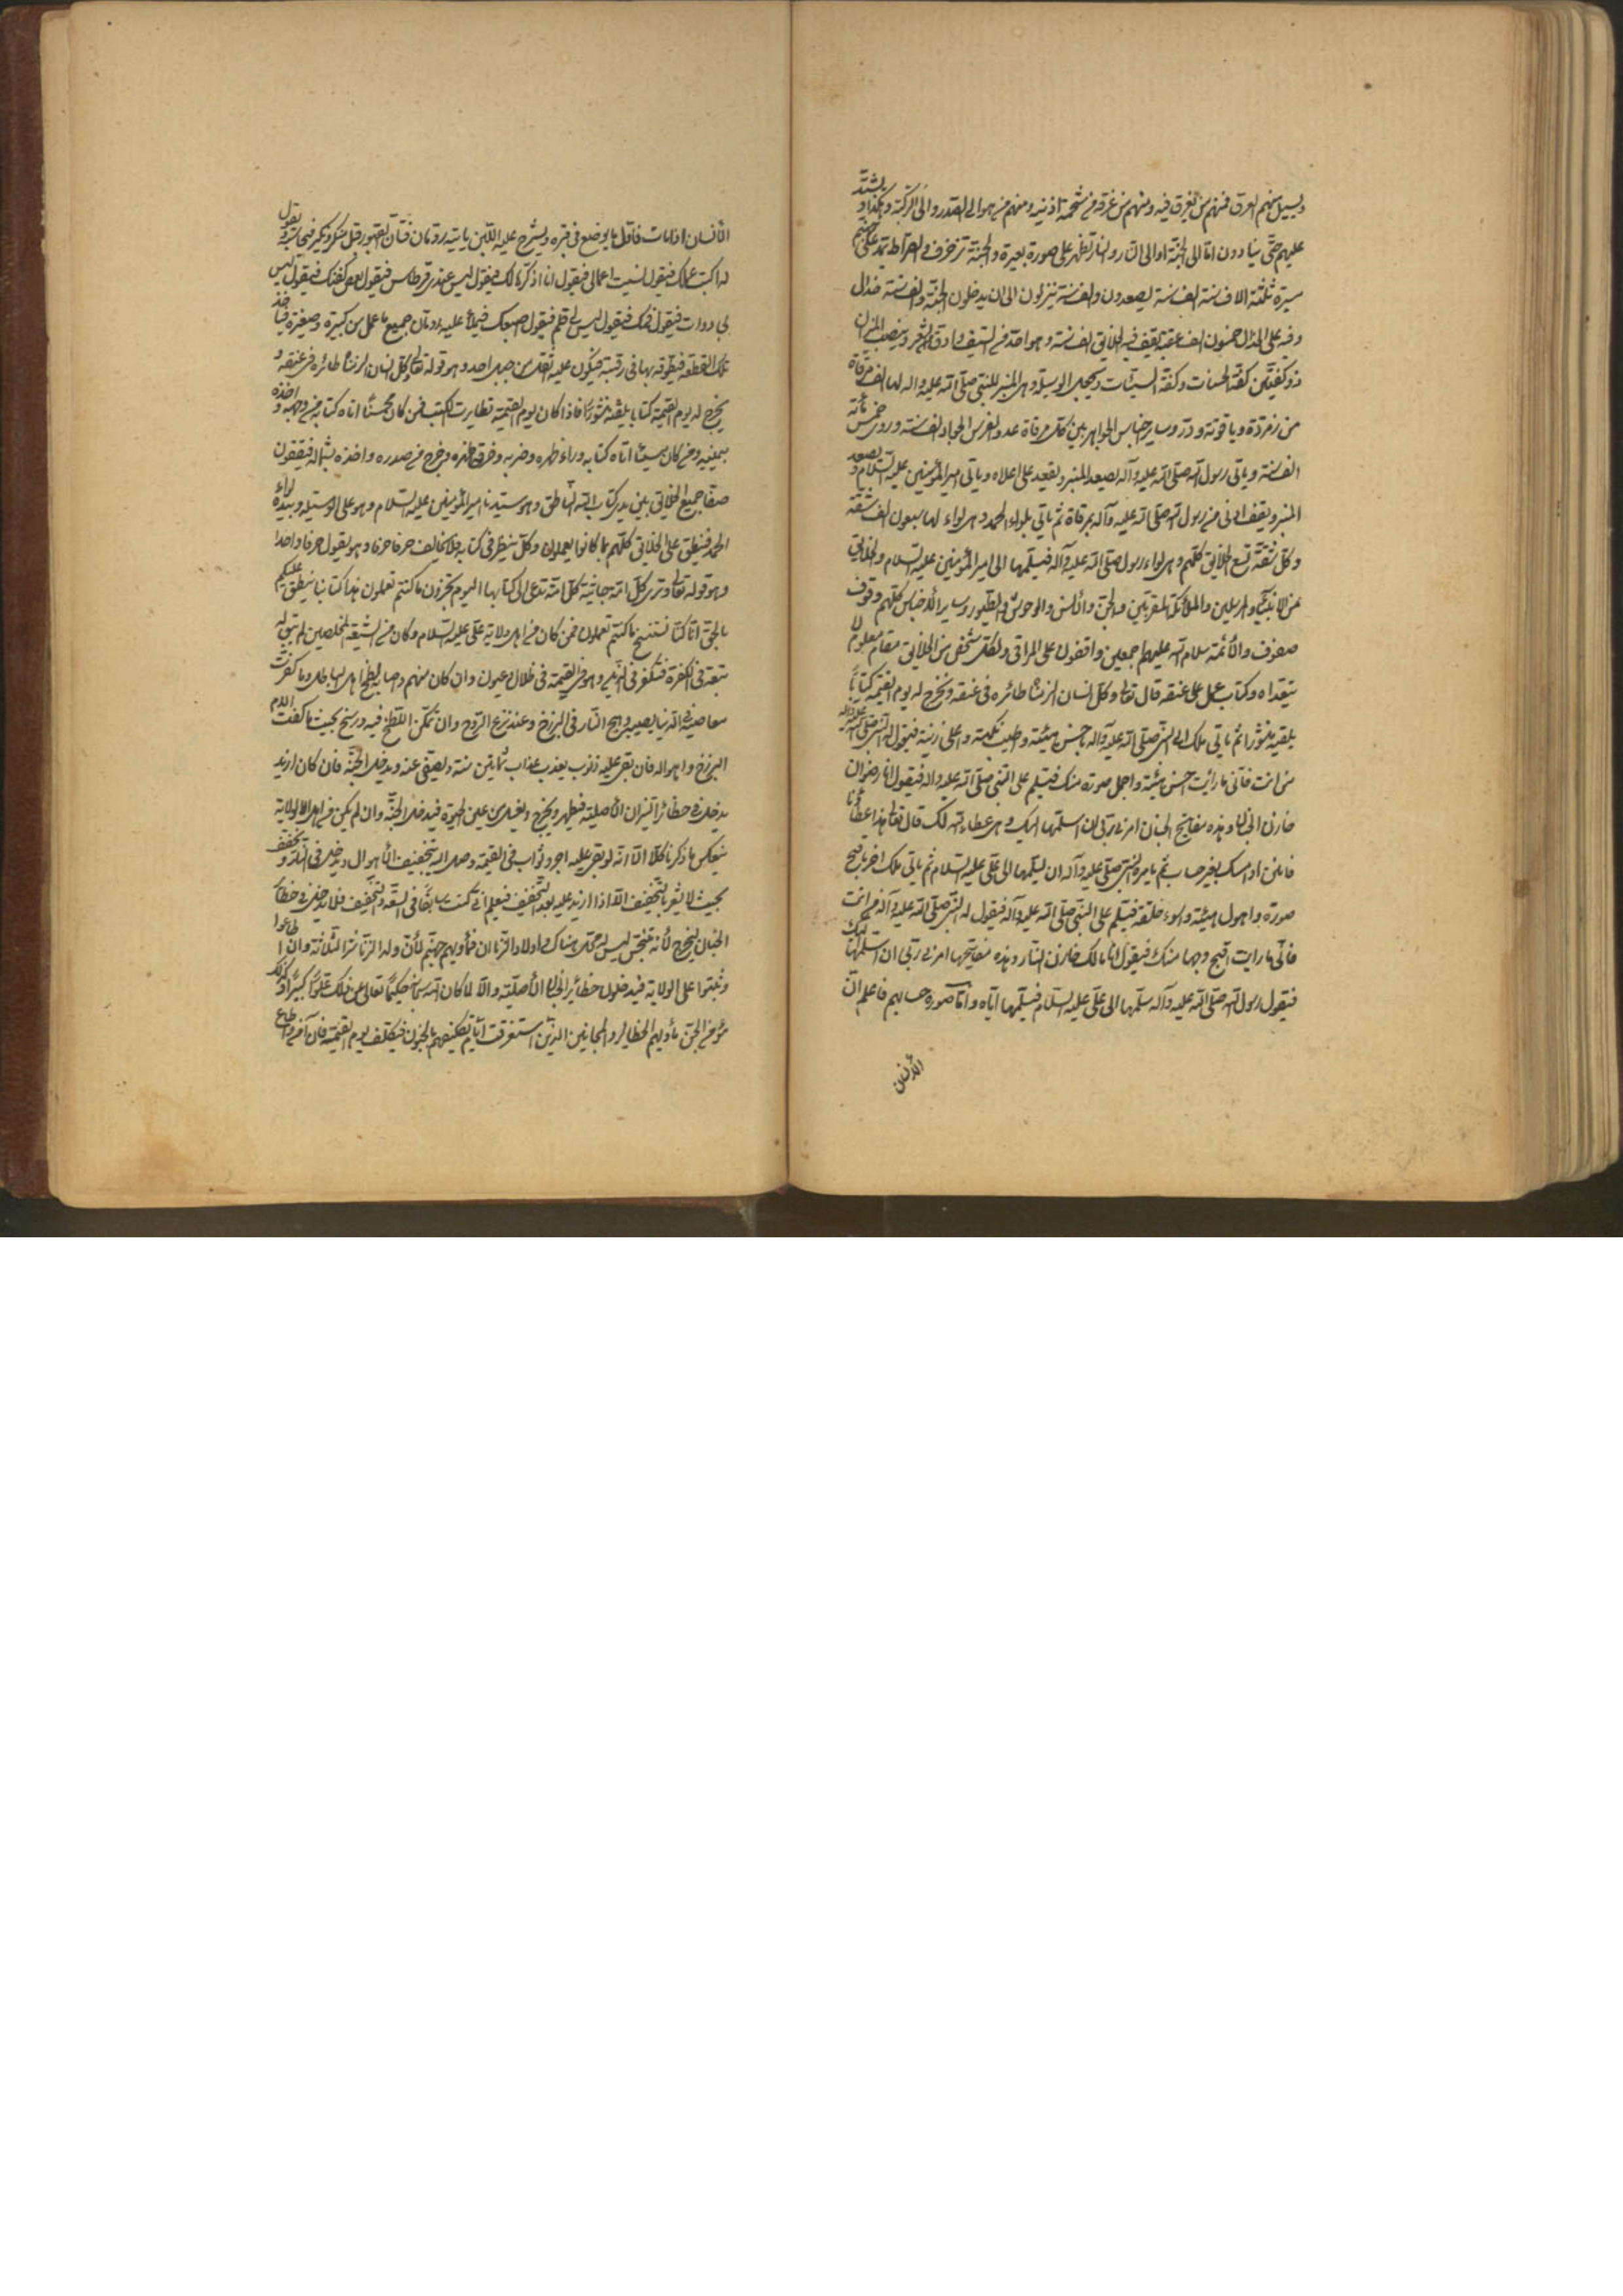 ويسيل منهم العرق فمنهم من يغرق فيه ومنهم من غرقه في شحمة اذنيه ومنهم من هو الى الصدر والى الركبة وهكذا ويشتد
عليهم حتى ينادون اما الى الجنة او الى النار والنار تظهر على صورة بعيرة والجنة تزخرف والصراط يمد على جهنم
مسيرة ثلثة الاف سنة الف سنة يصعدون والف سنة ينزلون الى ان يدخلون الجنة والف سنة خدال
وفيه على الخدال خمسون الف عقبة يقف فيه الخلايق الف سنة وهو احد من السيف وادق من الشعر وينصب الميزان
ذو كفتين كفة الحسنات وكفة السيئات ويجعل الوسيلة وهي المنبر للنبي صلى الله عليه واله لها الف مرقاة
من زمردة وياقوتة ودر وساير اجناس الجواهر بين كل مرقاة عدو الفرس الجواد الف سنة وروى خمس مأته
الف سنة وياتي رسول الله صلى الله عليه وآله يصعد المنبر ويقعد على اعلاه وياتي امير المؤمنين عليه السلام ويصعد
المنبر ويقف ادنى من رسول الله صلى الله عليه وآله بمرقاة ثم ياتي بلواء الحمد وهي لواء لها سبعون الف شقة
وكل شقة تسع الخلايق كلهم وهي لواء رسول الله صلى الله عليه وآله فيسلمها الى امير المؤمنين عليه السلام والخلايق
من الانبياء والمرسلين والملائكة المقربين والجن والانس والوحوش والطيور وساير الاجناس كلهم وقوف
صفوف والأئمة سلام الله عليهم اجمعين واقفون على المراقي ولكل شخص من الخلايق مقام معلوم لا
يتعداه وكتاب عمل على عنقه قال تعالى وكل انسان الزمناه طائره في عنقه ونخرج له يوم القيمة كتابا
يلقيه منثورا ثم ياتي ملك الى النبي صلى الله عليه وآله باحسن هيئة واطيب نكهة واعلى زينة فيقول له النبي صلى الله عليه وآله
من انت فاني ما رايت احسن هيئة واجمل صورة منك فيسلم على النبي صلى الله عليه واله فيقول انا رضوان
خازن الجنان وهذه مفاتيح الجنان امرني ربي ان اسلمها اليك وهي عطاء الله لك قال تعالى هذا عطاؤنا
فامنن او امسك بغير حساب ثم يامره النبي صلى الله عليه وآله ان يسلمها الى علي عليه السلام ثم ياتي ملك اخر باقبح
صورة واهول هيئة واسوء خلقة فيسلم على النبي صلى الله عليه وآله فيقول له النبي صلى الله عليه وآله من انت
فاني ما رايت اقبح وجها منك فيقول انا مالك خازن النار وهذه مفاتيحها امرني ربي ان اسلمها اليك
فيقول رسول الله صلى الله عليه وآله سلمها الى علي عليه السلام فيسلمها اياه واما صورة حسابهم فاعلم ان
الأنسان
الأنسان اذا مات فاول ما يوضع في قبره ويشرج عليه اللبن ياتيه رومان فتان القبور قبل منكر ونكير فيحاسبه ويقول
له اكتب عملك فيقول نسيت اعمالي فيقول انا اذكرها لك فيقول ليس عندي قرطاس فيقول بعض كفنك فيقول ليس
لي دوات فيقول فمك فيقول ليس لي قلم فيقول اصبعك فيملأ عليه رومان جميع ما عمل من كبيرة وصغيرة فيأخذ
تلك القطعة فيطوقه بها في رقبته فيكون عليه اثقل من جبل احد وهو قوله تعالى وكل انسان الزمناه طائره في عنقه و
يخرج له يوم القيمة كتابا يلقيه منثورا فاذا كان يوم القيمة تطايرت الكتب فمن كان محسنا اتاه كتابه من وجهه واخذه
بيمينه ومن كان مسيئا اتاه كتابه وراء ظهره وضربه وخرق ظهره وخرج من صدره واخذه بشماله فيقفون
صفا جميع الخلايق بين يدي كتاب الله الناطق وهو سيدنا امير المؤمنين عليه السلام وهو على الوسيلة وبيده لواء
الحمد فينطق على الخلايق كلهم بما كانوا يعملون وكل ينظر في كتابه فلا يخالف حرفا حرفا وهو يقول حرفا واحدا
وهو قوله تعالى وترى كل امة جاثية كل امة تدعى الى كتابها اليوم تجزون ما كنتم تعملون هذا كتابنا ينطق عليكم
بالحق انا كنا نستنسخ ما كنتم تعملون فمن كان من اهل ولاية علي عليه السلام وكان من الشيعة المخلصين لم تبق له
تبعة في الاخرة فتكفر في الدنيا وهو في القيمة في ظلال وعيون وان كان منهم واصابه لطخ اهل الباطل وما كفرت
معاصيه في الدنيا يصيبه وهج النار في البرزخ وعند نزع الروح وان تمكن اللطخ فيه ورسخ بحيث ما كفت آلام
البرزخ واهواله فان بقي عليه ذنوب يعذب عذاب ثمانين سنة ويعفى عنه ويدخل الجنة فان كان ازيد
يدخل في حظائر النيران الأصلية فيطهر ويخرج ويغسل من عين الحيوة فيدخل الجنة وان لم يكن من اهل الولاية
ينعكس ما ذكرنا كلا الا انه لو بقي عليه اجر وثواب في القيمة وصل اليه بتخفيف الأهوال ويدخل في النار ويخفف
بحيث لا يشعر بالتخفيف الا اذا ازيد عليه بعد التخفيف فيعلم اني كنت سابقا في السعة والتخفيف فلا يدخل في حظائر
الجنان ليخرج لأنه تنجس ليس محله هناك واولاد الزنا ان فمأويهم جهنم لأن ولد الزنا شر الثلاثة وان اطاعوا
وثبتوا على الولاية فيدخلون حظائر الجنان الأصلية والا لما كان الله سبحانه حكيما تعالى عن ذلك علوا كبيرا وكذلك
مؤمنوا الجن مأويهم الحظائر والمجانين الذين استغرقت ايام تكليفهم بالجنون فيكلف يوم القيمة فان آمن واطاع